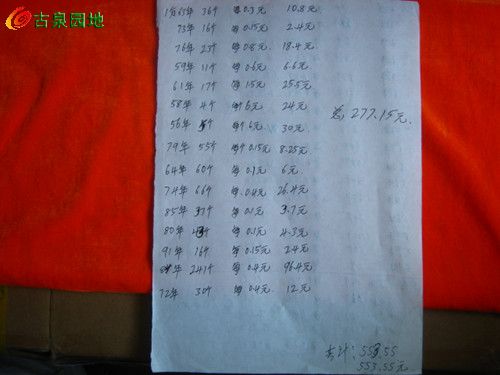 古泉园地
1角65年 36个 每0.3元 10.8元
73年 16个 每0.15元 2.4元
76年 23个 每0.8元 18.4元
59年 11个 每0.6元 6.6元
61年 17个 每1.5元 25.5元
58年 4个 每个6元 24元
56年 5个 每个6元 30元
总 277.15元.
79年 55个 每个0.15元 8.25元
64年 60个 每0.1元 6元
74年 66个 每0.4元 26.4元
85年 37个 每0.1元 3.7元
80年 43个 每0.1元 4.3元
91年 16个 每0.15元 2.4元
年 241个 每0.4元 96.4元
72年 30个 每0.4元 12元
共计: 553.55
553.55元